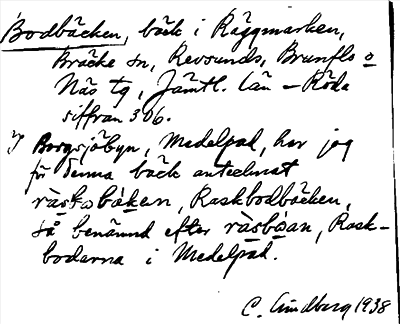 Bodbäcken, bäck i Räggmarken,
Bräcke sn, Revsunds, Brunflo o
Näs tg, Jämtl. län – Röda
siffran 306.
I Borgsjöbyn, Medelpad, har jag
för denna bäck antecknat
Raskbodbäcken,
så benämnd efter Rask-
bodarna i Medelpad.
C. Lindberg 1938